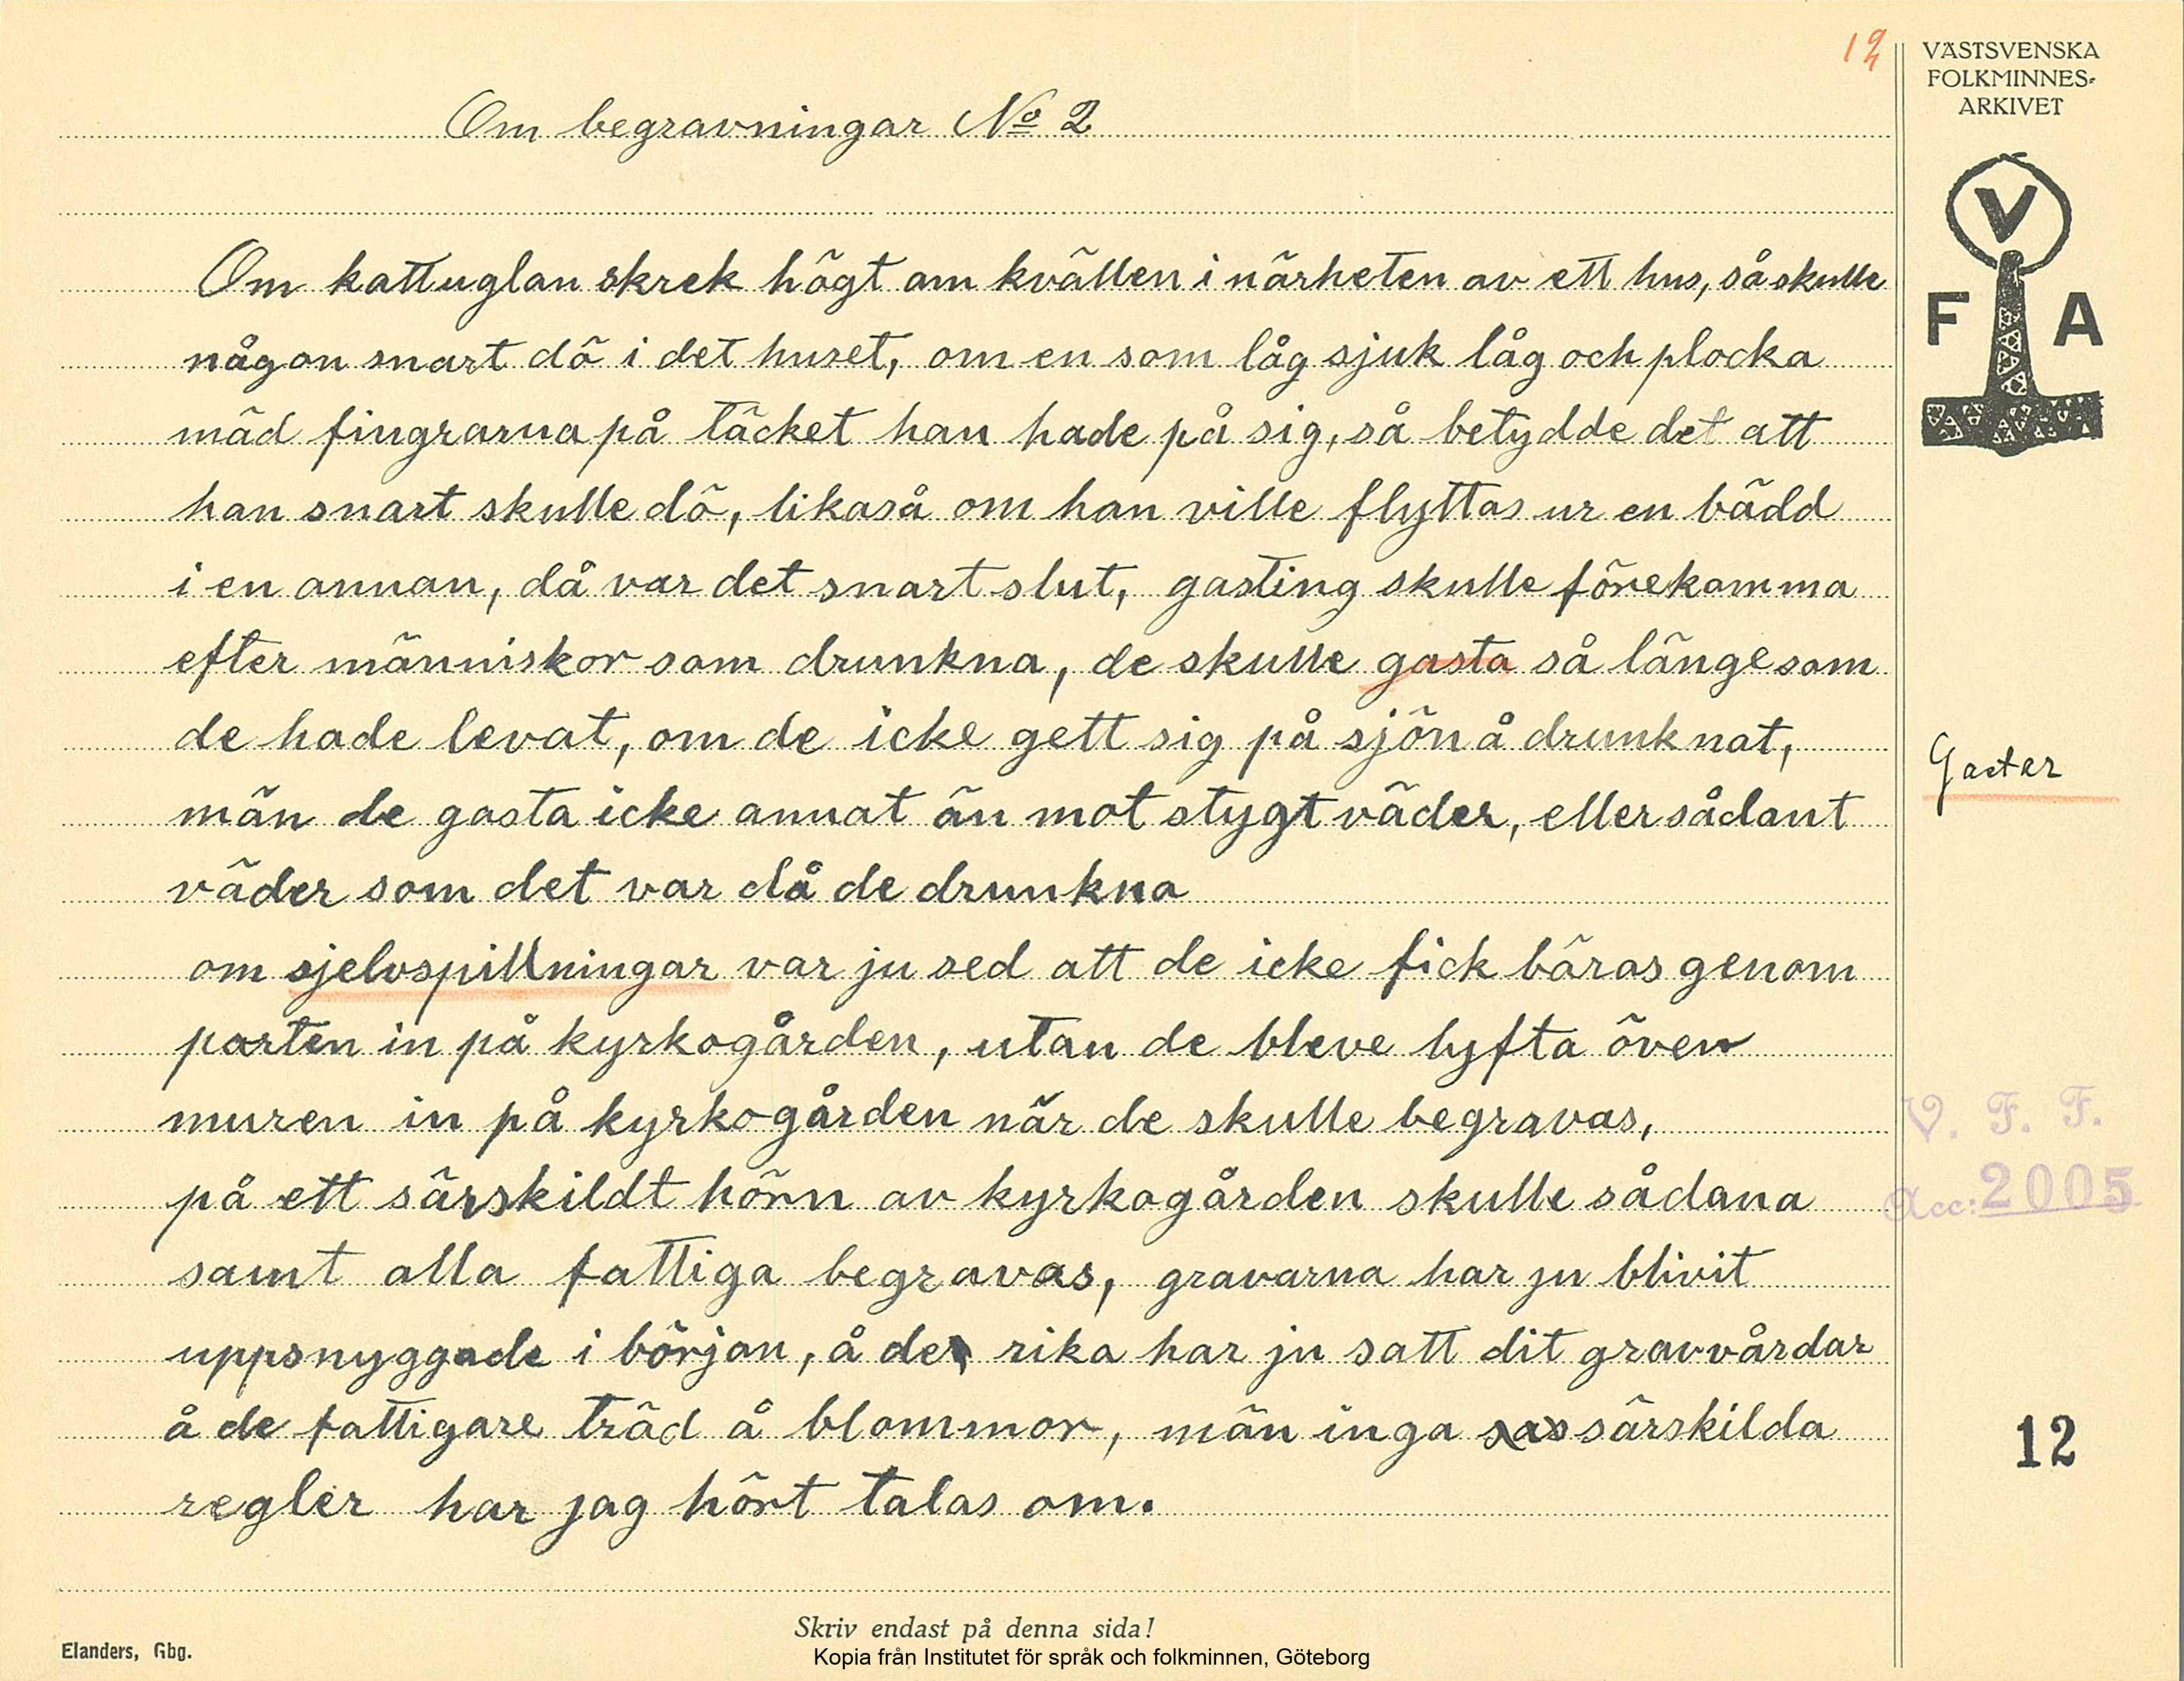 12
VÄSTSVENSKA
FOLKMINNES-
ARKIVET
V
F A
Om begravningar No 2
Om kattuglan skrek högt om kvällen i närheten av ett hus, så skulle
någon snart dö i det huset, om en som låg sjuk låg och plocka
mäd fingrarna på täcket han hade på sig, så betydde det att
han snart skulle dö, likaså om han ville flyttas ur en bädd
i en annan, då var det snart slut, gasting skulle förekomma
efter människor som drunkna, de skulle gasta så länge som
de hade levat, om de icke gett sig på sjön å drunknat,
Gaster
män de gasta icke annat än mot stygt väder, eller sådant
väder som det var då de drunkna
om sjelvspillningar var ju sed att de icke fick bäras genom
porten in på kyrkogården, utan de bleve lyfta över
muren in på kyrkogården när de skulle begravas,
V. F. F.
på ett särskildt hörn av kyrkogården skulle sådana
Acc: 2005
samt alla fattiga begravas, gravarna har ju blivit
uppsnyggade i början, å de rika har ju satt dit gravvårdar
å de fattigare träd å blommor, män inga särskilda
12
regler har jag hört talas om.
Skriv endast på denna sida!
Elanders, Gbg.
Kopia från Institutet för språk och folkminnen, Göteborg